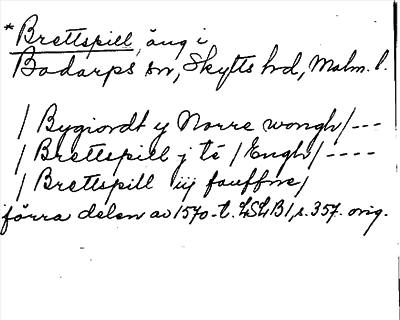 *Brettspill, äng i
Bodarps sn, Skytts hd, Malm. l.
/ Bygiordt y Norre wongh / ---
/ Brettspill j té / Engh / ----
/ Brettspill iij fauffne /
förra delen av 1570-t. LSLB1, s. 357. orig.